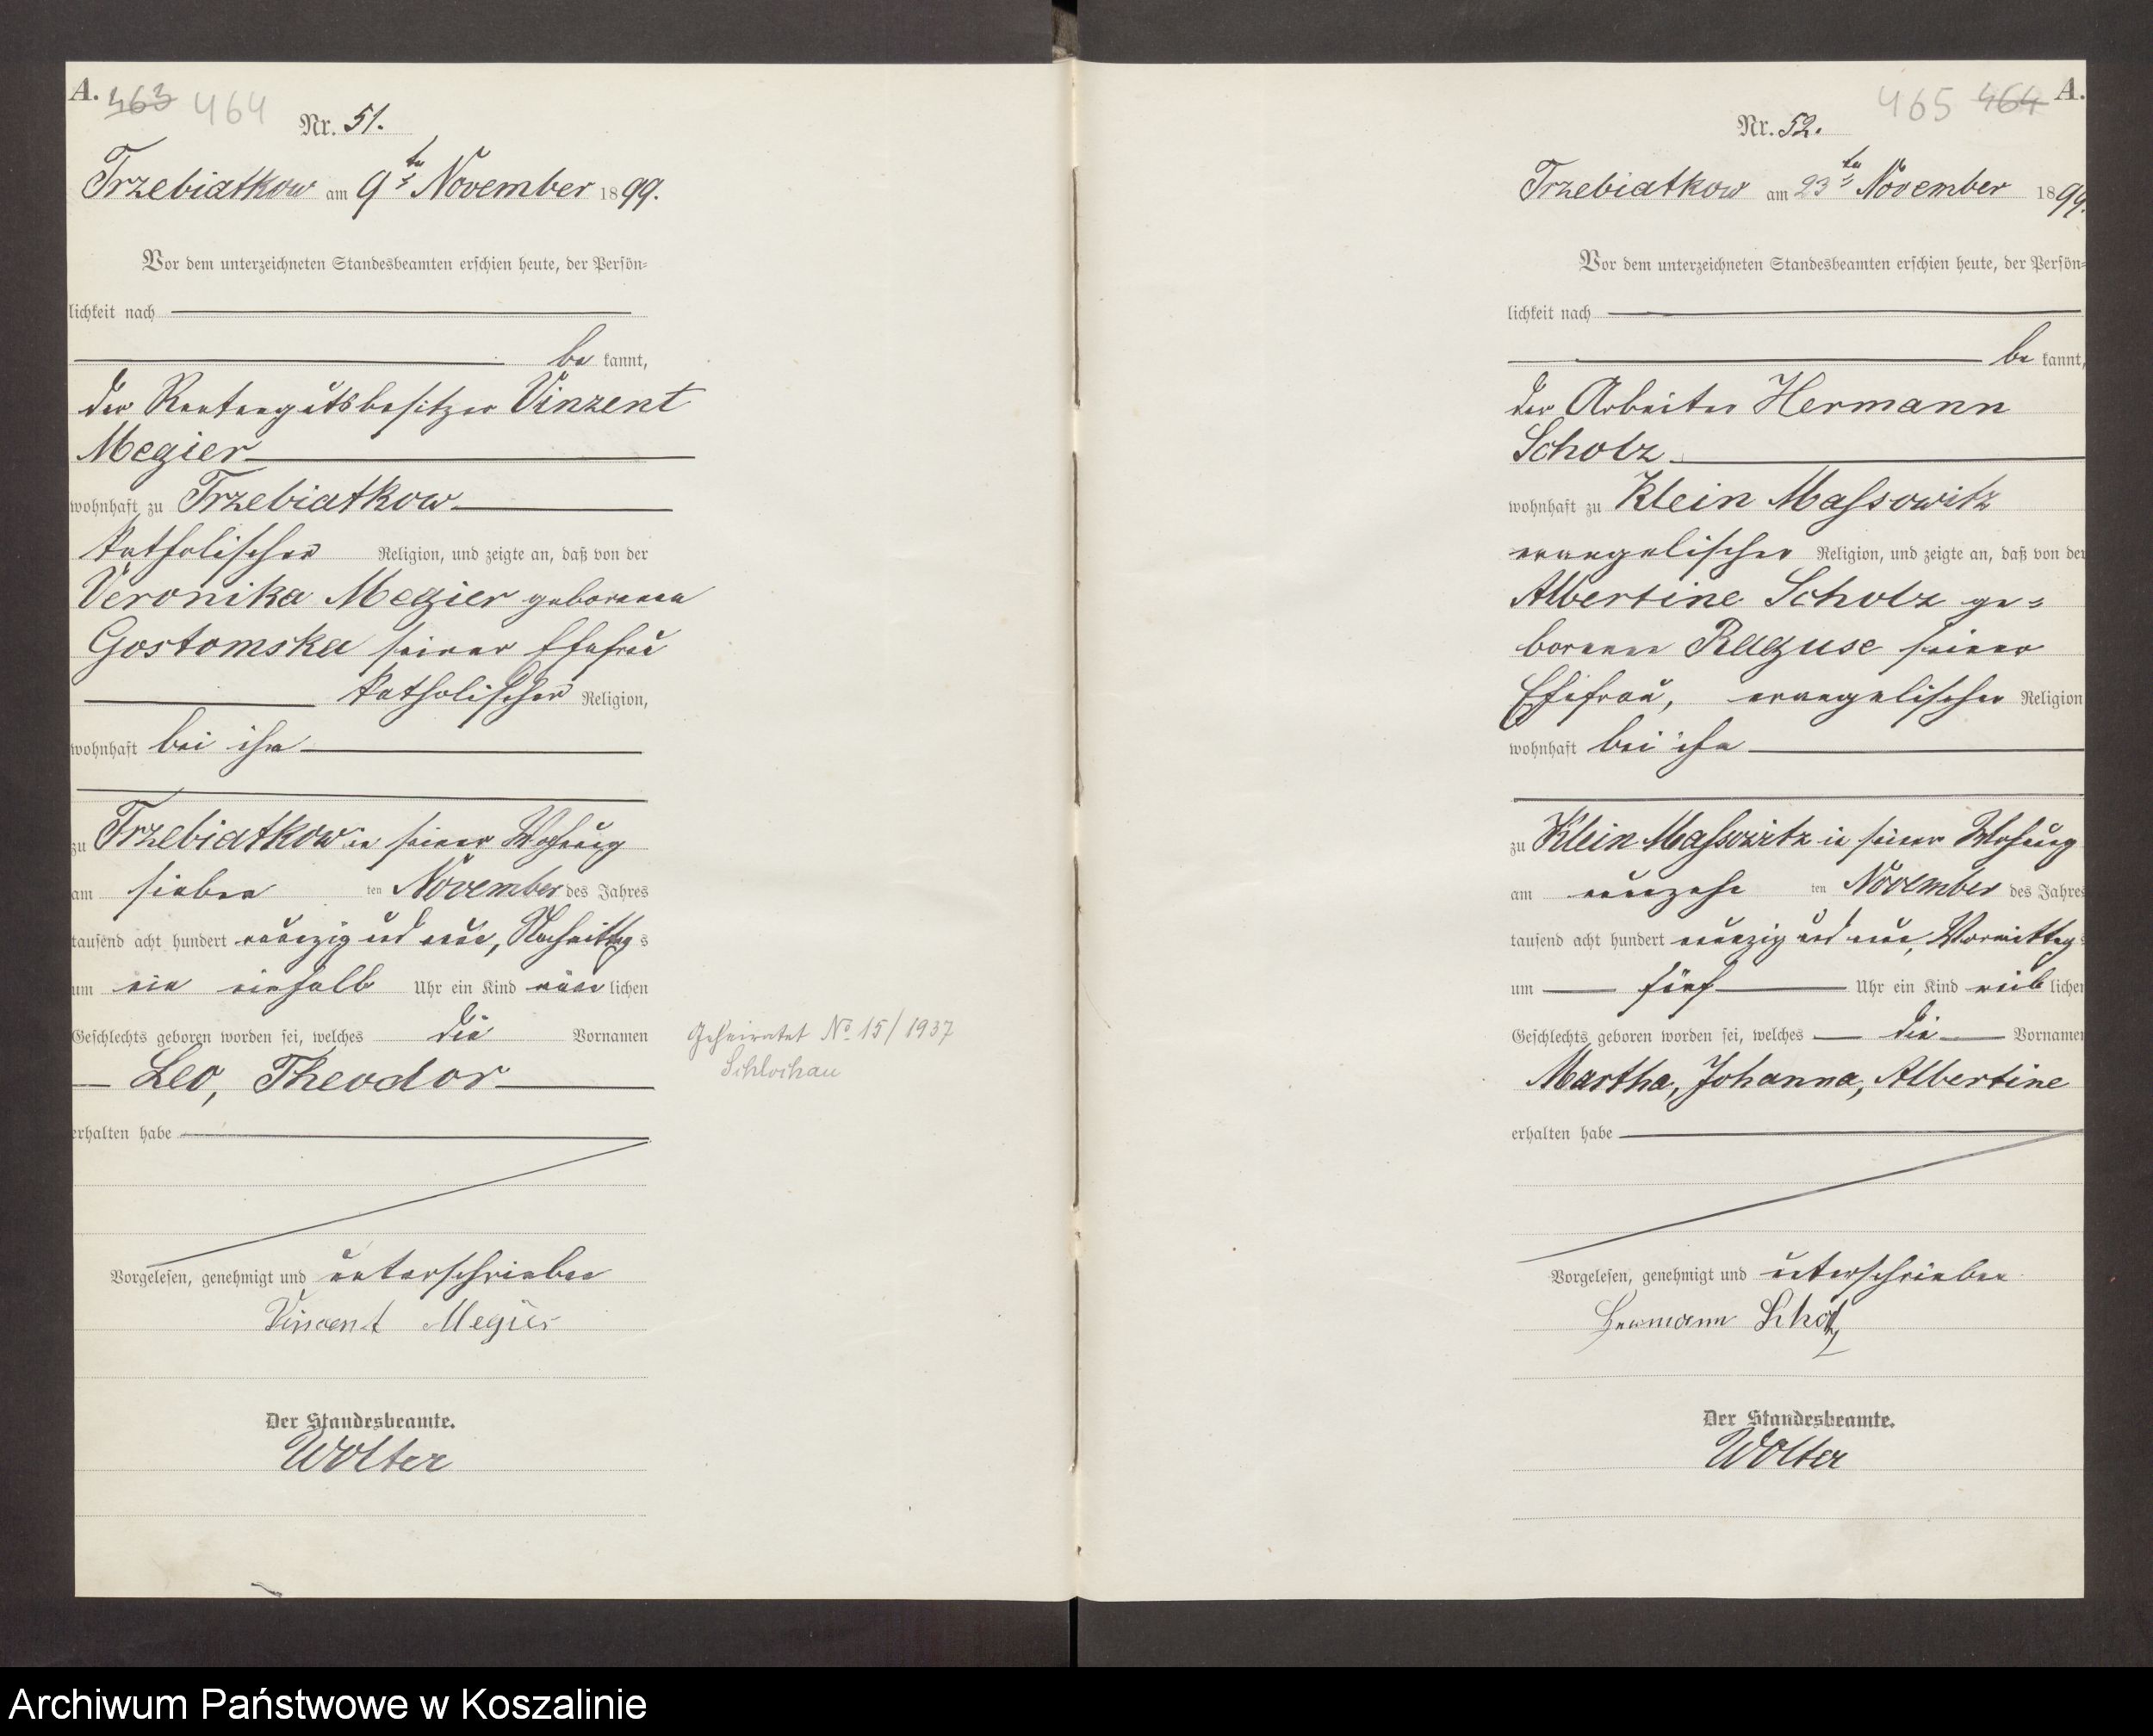 A. 463 464
Nr. 51.
Trzebiatkow am 9ten November 1899.
Vor dem unterzeichneten Standesbeamten erschien heute, der Persön=
lichkeit nach
be kannt,
der Rentengutsbesitzer Vinzent
Megier
wohnhaft zu Trzebiatkow
katholischer Religion, und zeigte an, daß von der
Veronika Megier geborenen
Gostomska seiner Ehefrau
katholischer Religion,
wohnhaft bei ihm
zu Trzebiatkow in seiner Wohnung
am sieben ten November des Jahres
tausend acht hundert neunzig und neun, Nachmittag s
um ein einhalb Uhr ein Kind männ lichen
Geschlechts geboren worden sei, welches die Vornamen
Leo, Theodor
erhalten habe
Vorgelesen, genehmigt und unterschrieben
Vincent Megier
Der Standesbeamte.
Wolter
Geheiratet No 15/1937
Schlochau
465 464 A.
Nr. 52.
Trzebiatkow am 23ten November 1899.
Vor dem unterzeichneten Standesbeamten erschien heute, der Persön=
lichkeit nach
be kannt,
der Arbeiter Hermann
Scholz
wohnhaft zu Klein Massowitz
evangelischer Religion, und zeigte an, daß von der
Albertine Scholz ge=
borenen Raguse seiner
Ehefrau, evangelischer Religion
wohnhaft bei ihm
zu Klein Massowitz in seiner Wohnung
am neunzehn ten November des Jahres
tausend acht hundert neunzig und neun, Vormittag s
um fünf Uhr ein Kind weib lichen
Geschlechts geboren worden sei, welches die Vornamen
Martha, Johanna, Albertine
erhalten habe
Vorgelesen, genehmigt und unterschrieben
Hermann Scholz
Der Standesbeamte.
Wolter
Archiwum Państwowe w Koszalinie